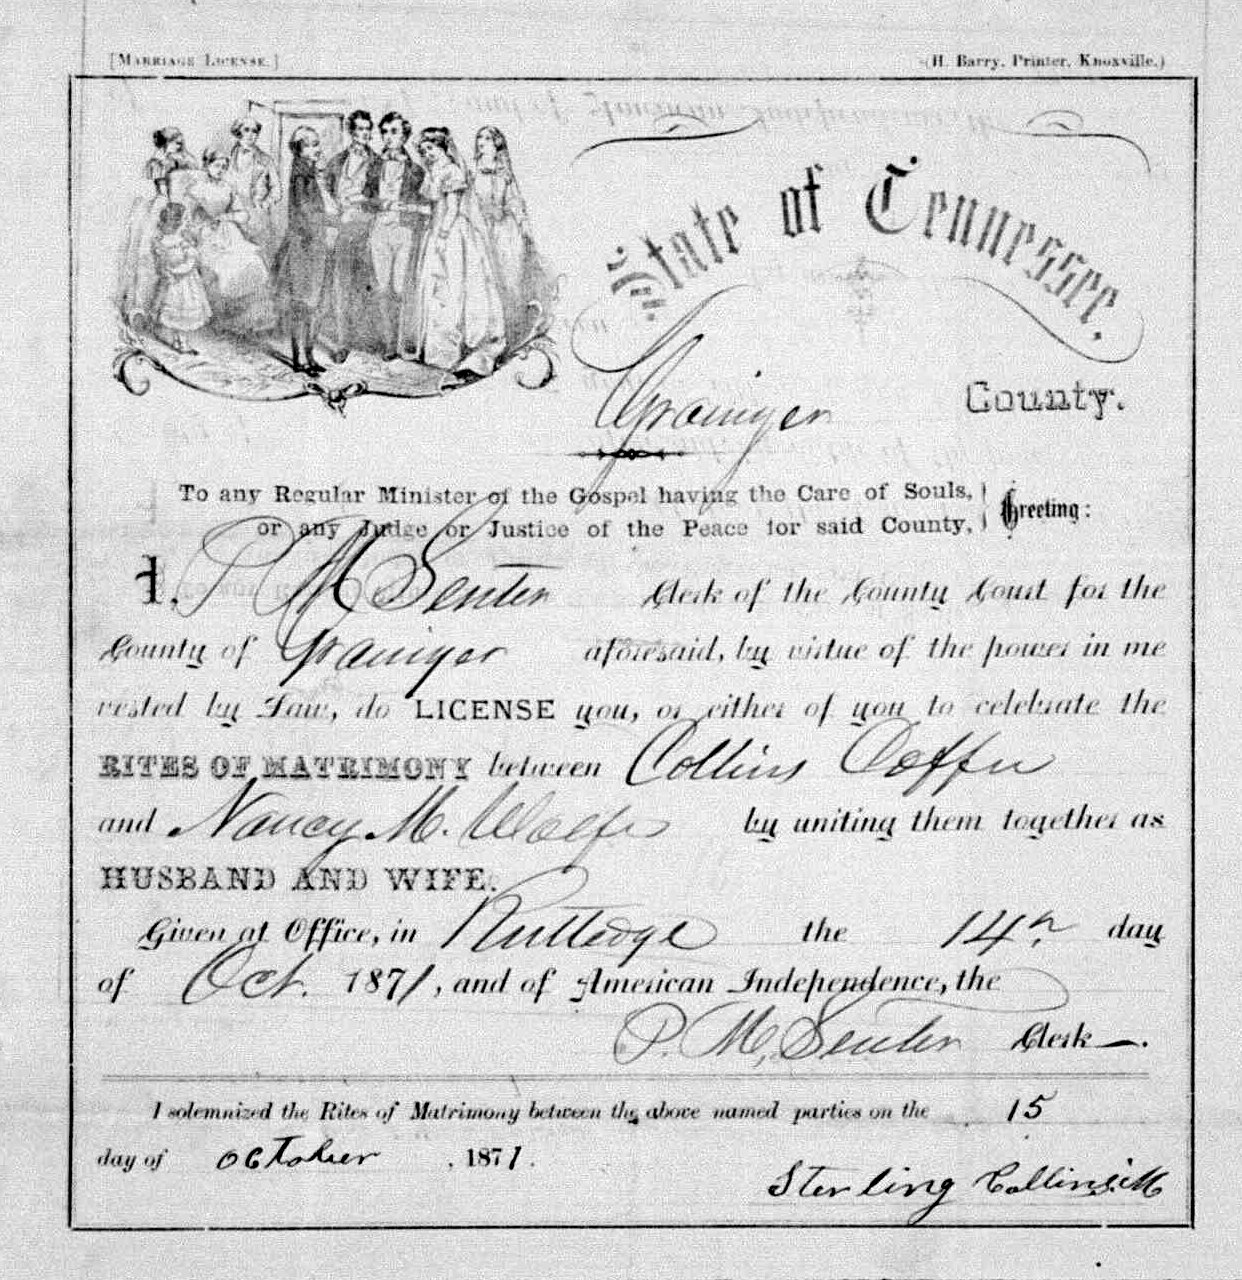 [Marriage License.] (H. Barry, Printer, Knoxville.)
State of Tennessee.
Grainger County.
To any Regular Minister of the Gospel having the Care of Souls,
or any Judge or Justice of the Peace for said County, Greeting:
I, P M Senter Clerk of the County Court for the
County of Grainger aforesaid, by virtue of the power in me
vested by Law, do LICENSE you, or either of you to celebrate the
RITES OF MATRIMONY between Collins Coffee
and Nancy M. Wolfe by uniting them together as
HUSBAND AND WIFE.
Given at Office, in Rutledge the 14th day
of Oct. 1871, and of American Independence, the
P. M. Senter Clerk
I solemnized the Rites of Matrimony between the above named parties on the 15
day of october, 1871.
Sterling Collins